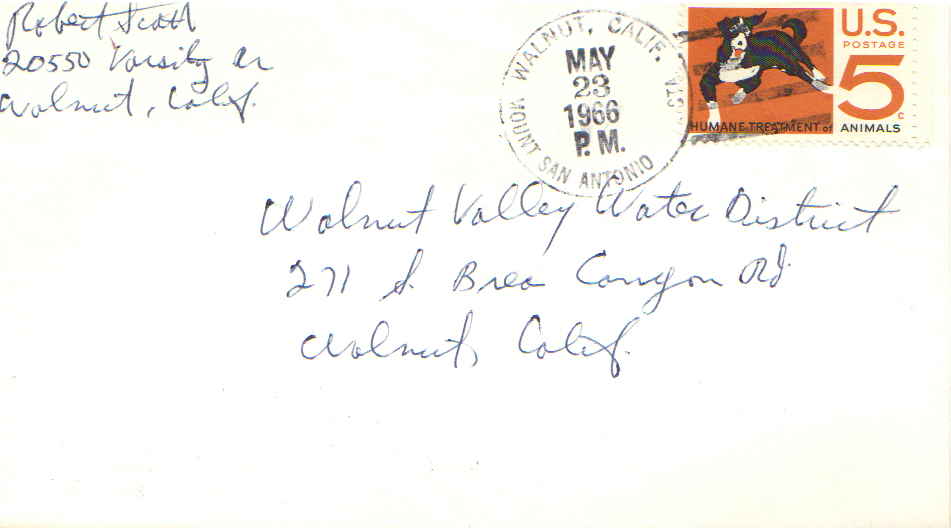 Robert Scott
20550 Varsity Dr
Walnut, Calif.
WALNUT, CALIF.
MOUNT SAN ANTONIO STA.
MAY
23
1966
P.M.
U.S.
POSTAGE
5c
HUMANE TREATMENT of ANIMALS
Walnut Valley Water District
271 S. Brea Canyon Rd.
Walnut, Calif.